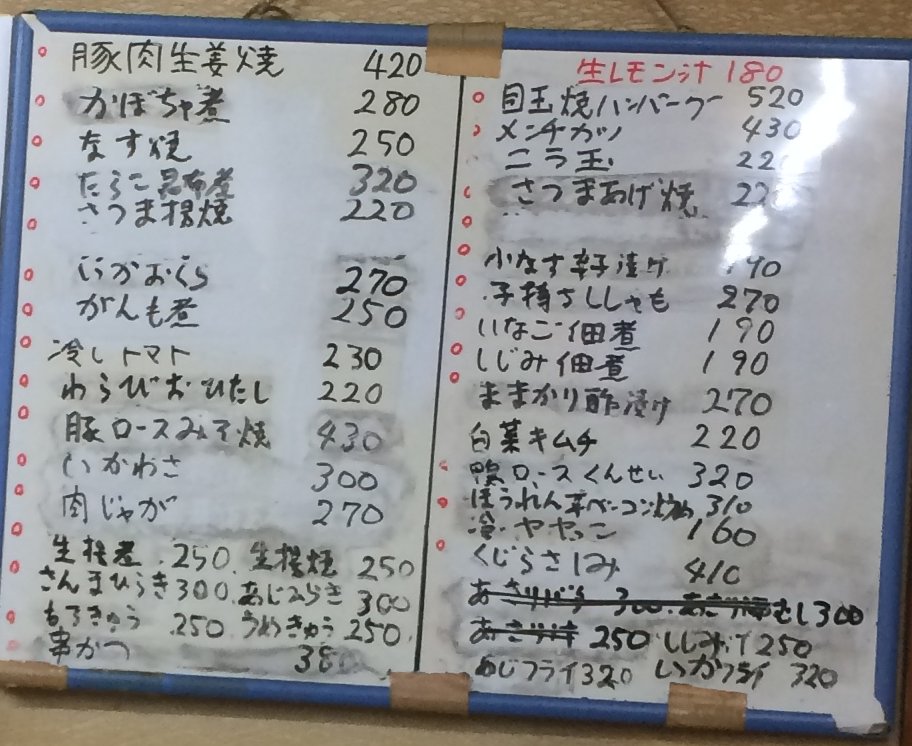 豚肉生姜焼 420
かぼちゃ煮 280
なす焼 250
たらこ昆布煮 320
さつま揚焼 220
いかおくら 270
がんも煮 250
冷しトマト 230
わらびおひたし 220
豚ロースみそ焼 430
いかわさ 300
肉じゃが 270
生揚煮 250 生揚焼 250
さんまひらき 300 あじひらき 300
もろきゅう 250 うめきゅう 250
串かつ 380
生レモン汁 180
目玉焼ハンバーグ 520
メンチカツ 430
ニラ玉 22
さつまあげ焼 22
小なす辛子漬け 190
子持ちししゃも 270
いなご佃煮 190
しじみ佃煮 190
ままかり酢漬け 270
白菜キムチ 220
鴨ロースくんせい 320
ほうれん草ベーコン炒め 310
冷ややっこ 160
くじらさしみ 410
300 むし300
250 250
あじフライ 320 いかフライ 320